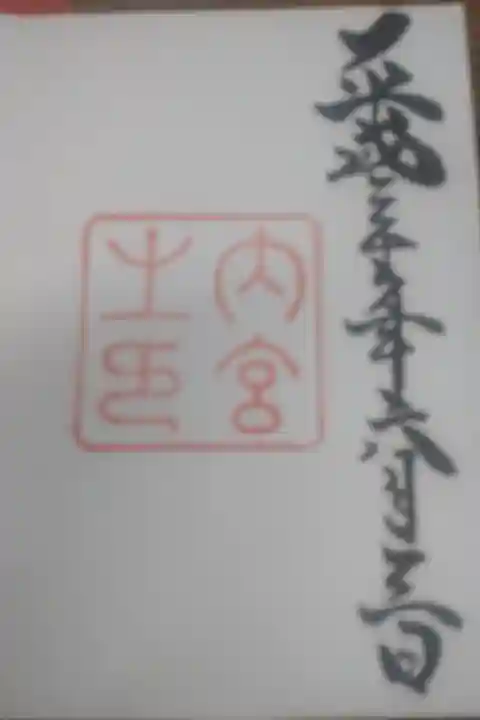 平成二十五年六月三日
内宮
之印